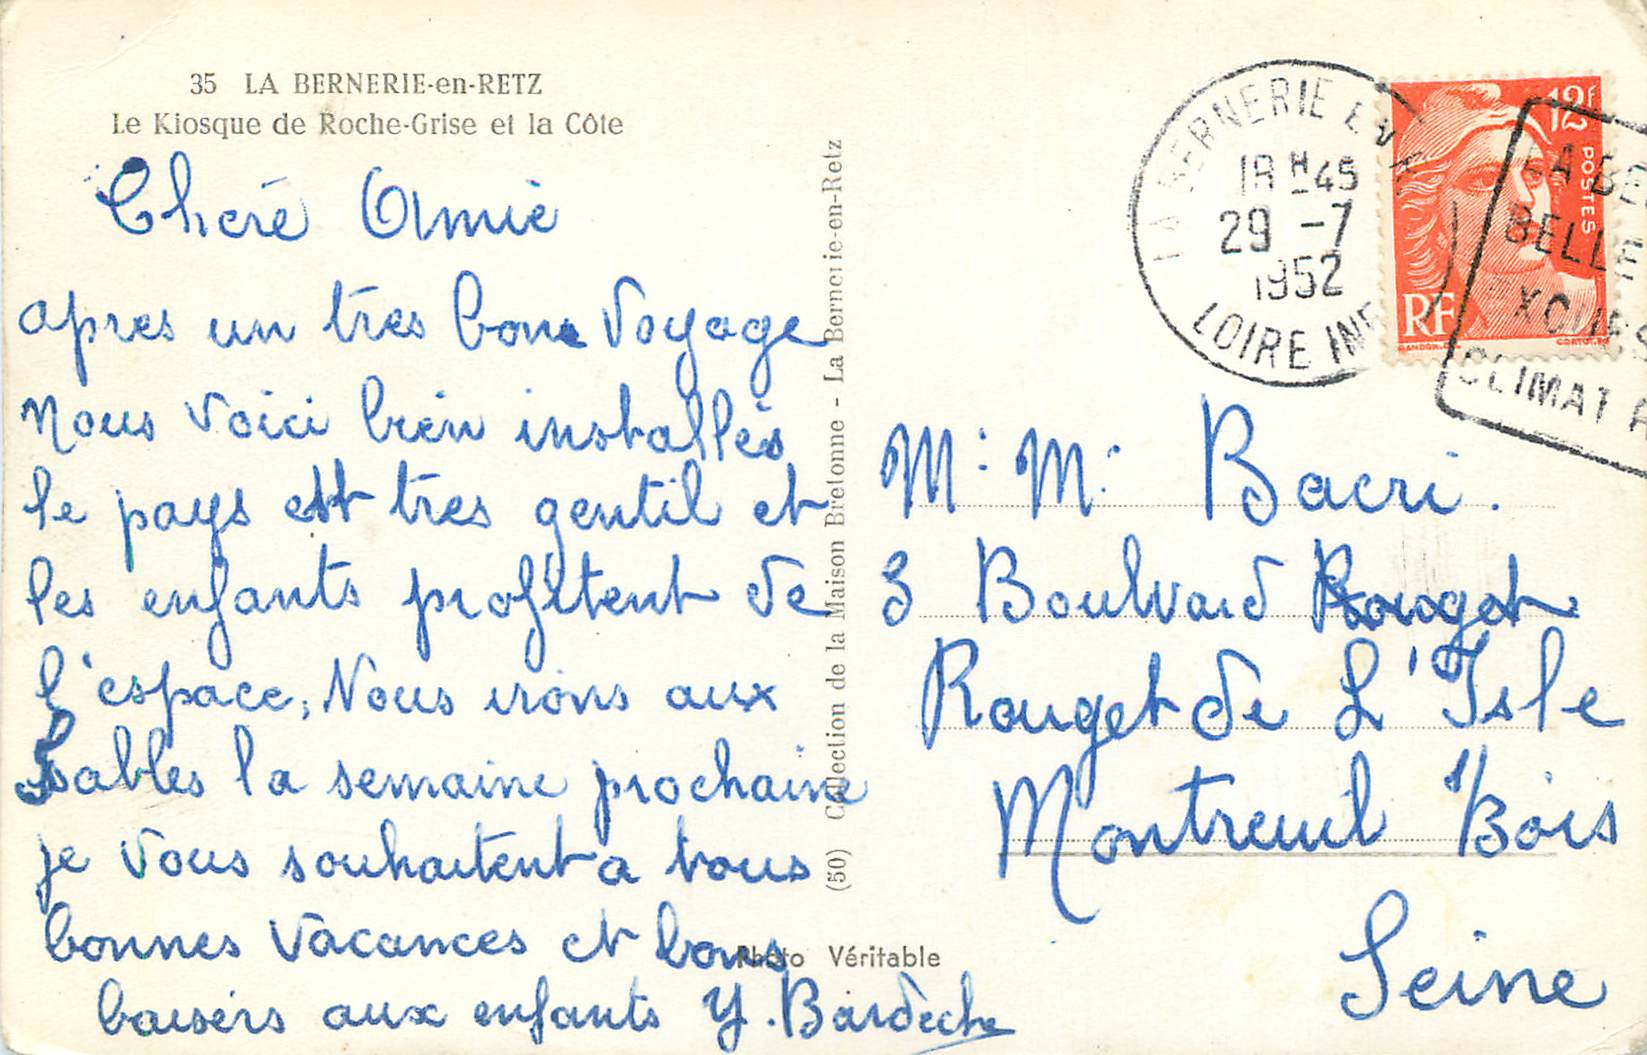 35 LA BERNERIE-en-RETZ
Le Kiosque de Roche-Grise et la Côte
Cheré Amie
apres un tres bon Voyage
Nous voici bien installés
le pays est tres gentil et
les enfants profitent de
l'espace, Nous irons aux
Sables la semaine prochaine
je vous souhaitent a tous
bonnes vacances et bons
baisers aux enfants Y. Bardeche
(50) Collection de la Maison Bretonne - La Bernerie-en-Retz
Photo Véritable
LA BERNERIE EN R
18 H 45
29 -7
1952
LOIRE INF
12F
POSTES
RF
GANDON
CORTOT
LA BE
BELLE P
XCURS
CLIMAT
M: M: Bacri.
3 Boulvard Rouget
Rouget de L'Isle
Montreuil s/Bois
Seine